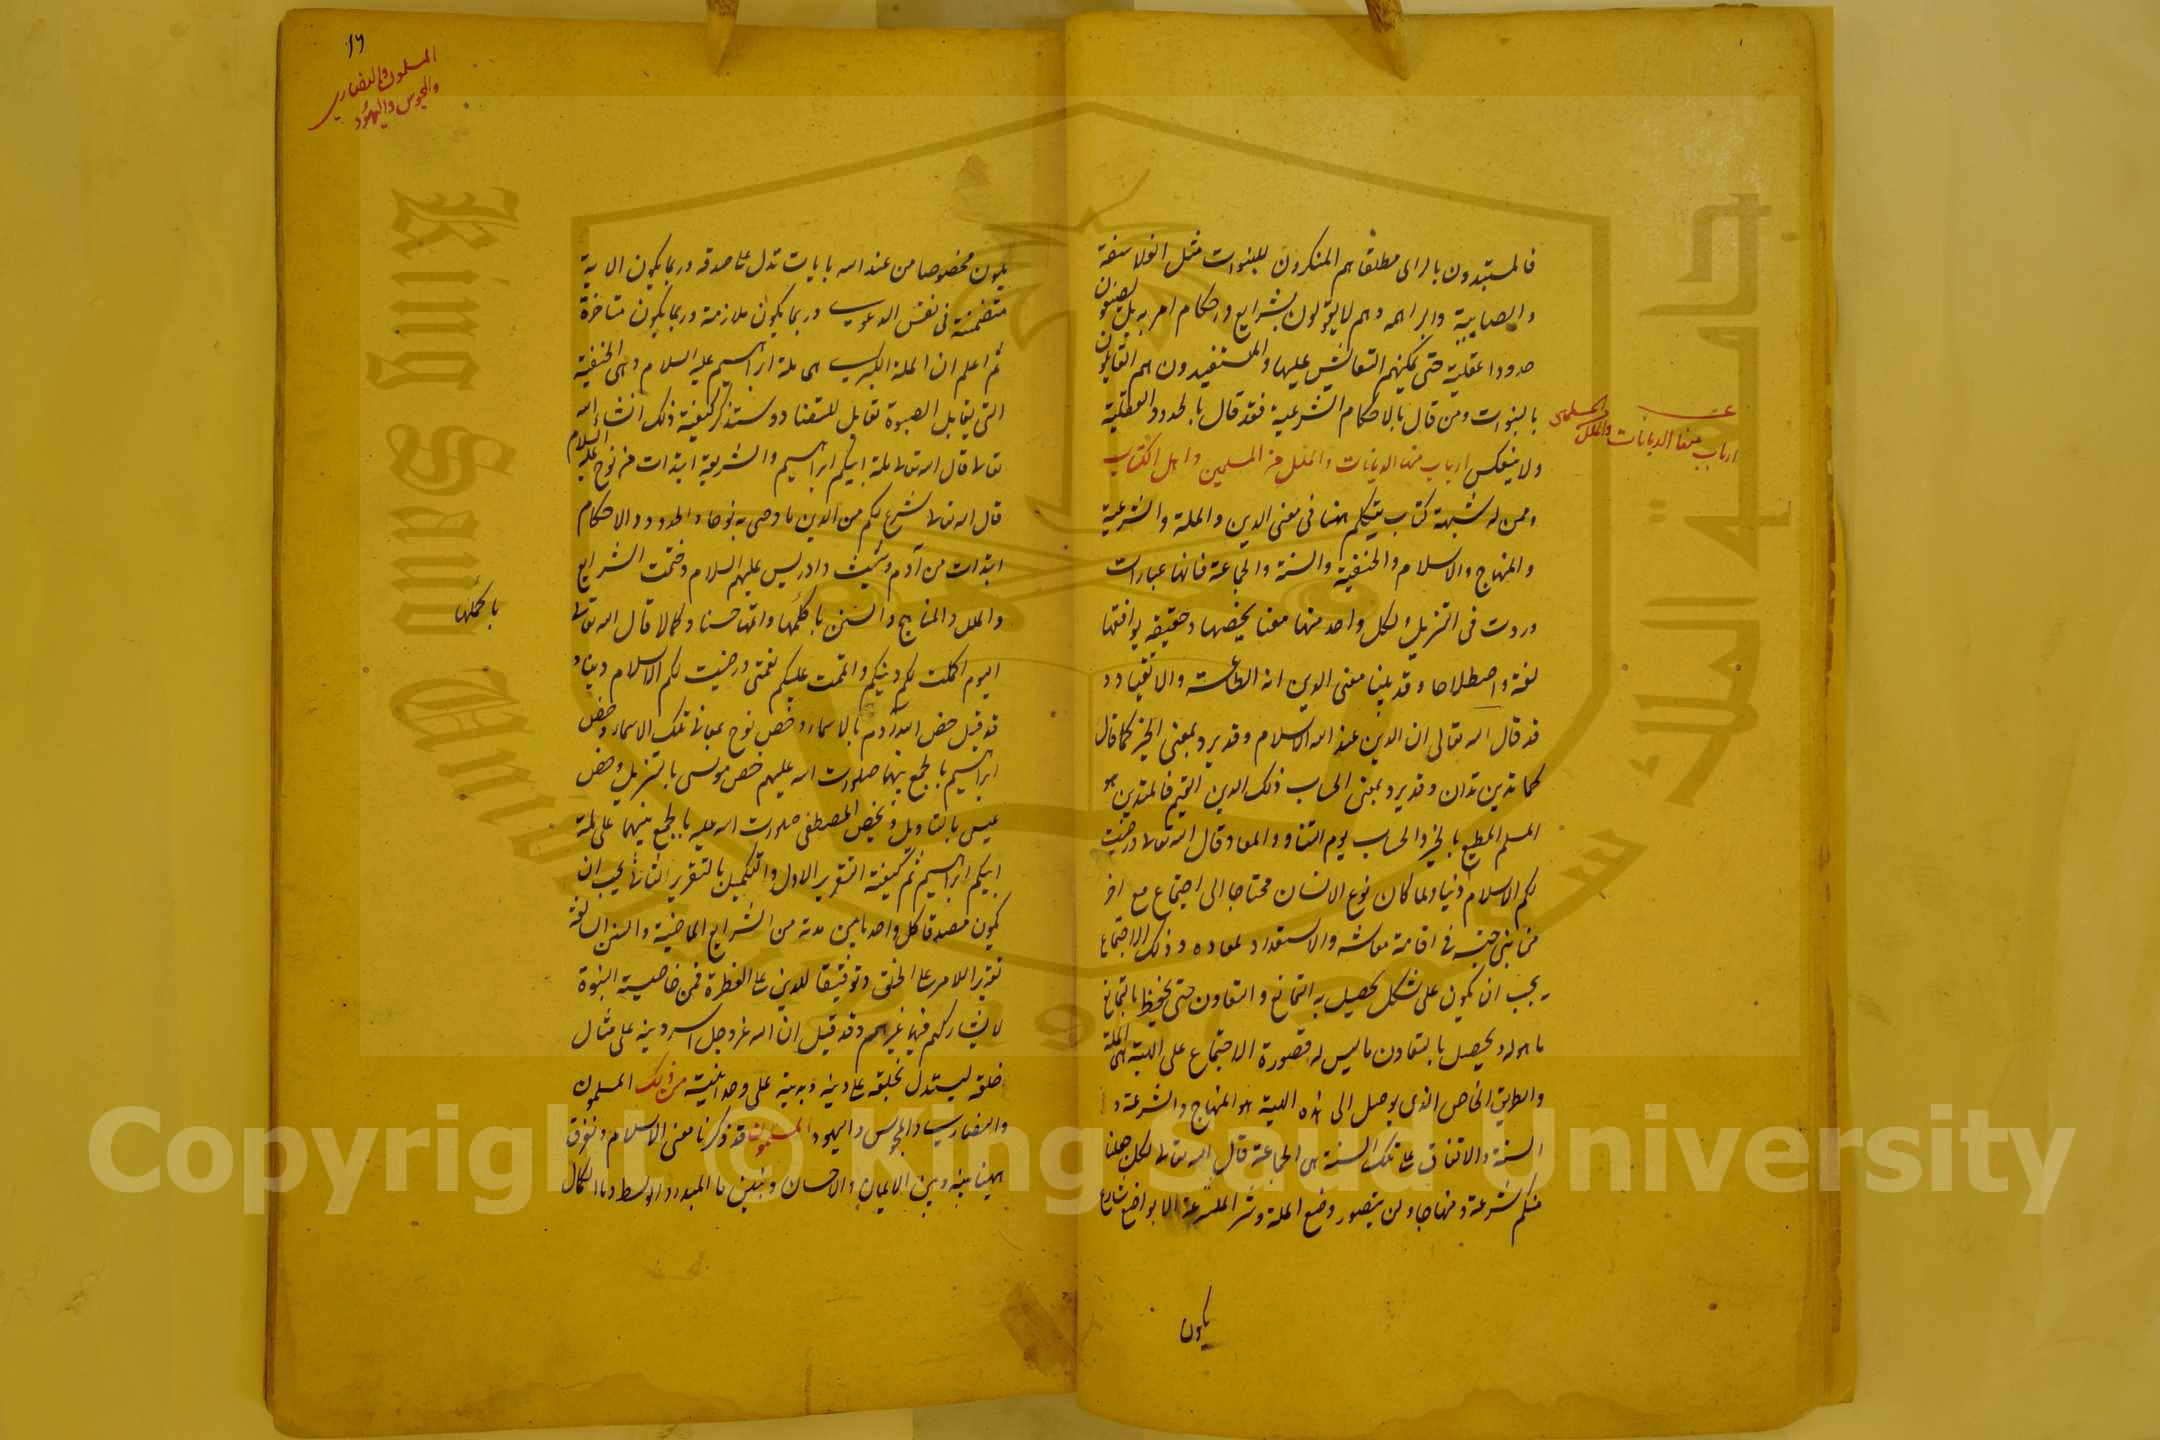 فالمستبدون بالراى مطلقا هم المنكرون للبنوات مثل الفلاسفة
والصابية والبراهمه وهم لا يقولون بشرايع واحكام امريه بل يضعون
حدودا عقلية حتى يمكنهم التعايش عليها والمستفيدون هم القايلون
بالنبوات ومن قال بالاحكام الشرعية فقد قال بالحدود العقلية
ولا ينعكس ارباب الديانات والملل من المسلمين واهل الكتاب
وممن له شبهة كتاب نتكلم ههنا فى معنى الدين والملة والشرعية
والمنهاج والاسلام والحنفية والسنة والجماعة فانها عبارات
وردت فى التنزيل ولكل واحد منها معنا يخصها وحقيقه يوافقها
لغة واصطلاحا وقد بينا معنى الدين انه الطاعة والانقياد و
قد قال الله تعالى ان الدين عند الله الاسلام وقد يرد بمعنى الجز كما قال
كما تدين تدان وقد يرد بمعنى الحساب ذلك الدين القيم فالمتدين هو
المسلم المطيع بالجز والحساب يوم التناد والمعاد قال الله تعالا ورضيت
لكم الاسلام دنيا ولما كان نوع الانسان محتاجا الى اجتماع مع اخر
من بنى جنسه فى اقامة معاشه والاستعداد لمعاده وذلك الاجتماع
يجب ان يكون على شكل يحصل به التمانع والتعاون حتى يحفظ بالتمانع
ما هو له ويحصل بالتعاون ما ليس له فصورة الاجتماع على الهيئة هى الملة
والطريق الخاص الذى يوصل الى هذه الهيئة هو المنهاج والشرعة و
السنة والاتفاق على تلك السنة هى الجماعة قال الله تعالا لكل جعلنا
منكم شرعة ومنهاجا ولن يتصور وضع الملة وشرع الشرعة الا بواضع شارع
يكون
ارباب الديانات والملل
يكون مخصوصا من عند الله بايات تدل على صدقه وربما يكون الاية
متضمنة فى نفس الدعوى وربما يكون ملازمة وربما يكون متاخرة
ثم اعلم ان الملة الكبرى هى ملة ابراهيم عليه السلام وهى الحنفية
التى يقابل الصبوة تقابل التضاد وسنذكر كيفية ذلك انشاء الله
تعالا قال الله تعالا ملة ابيكم ابراهيم والشريعة ابتدات من نوح عليه السلام
قال الله تعالا شرع لكم من الدين ما وصى به نوحا والحدود والاحكام
ابتدات من آدم وشيث وادريس عليهم السلام وختمت الشرايع
والملل والمناهج والسنن باكملها واتمها حسنا وكمالا قال الله تعالا
اليوم اكملت لكم دينكم واتممت عليكم نعمتى ورضيت لكم الاسلام دينا و
قد قيل خص آدم بالاسماء وخص نوح بمعانى تلك الاسماء وخص
ابراهيم بالجمع بينهما صلوات الله عليهم خص موسى بالتنزيل وخص
عيسى بالتاويل ويخص المصطفى صلوات الله عليه بالجمع بينهما على ملة
ابيكم ابراهيم ثم كيفية التقرير الاول والتكميل بالتقرير الثانى يجب ان
يكون مصدقا كل واحد ما بين يديه من الشرايع الماضية والسنن السالفة
تقديرا للامر على الخلق وتوفيقا للدين على الفطرة فمن خاصية النبوة
لا يشاركهم فيها غيرهم وقد قيل ان الله عزوجل اسس دينه على مثال
خلقه ليستدل بخلقه على دينه وبدينه على وحدانيته من ذلك المسلمون
والنصارى والمجوس واليهود المسلمون قد ذكرنا معنى الاسلام ونفرق
ههنا بينه وبين الايمان والاحسان ونبين ما المبدء والوسط وما الكمال
باكملها
١٦
المسلمون والنصارى
والمجوس واليهود
King Saud University
جامعة الملك سعود
1957
Copyright © King Saud University